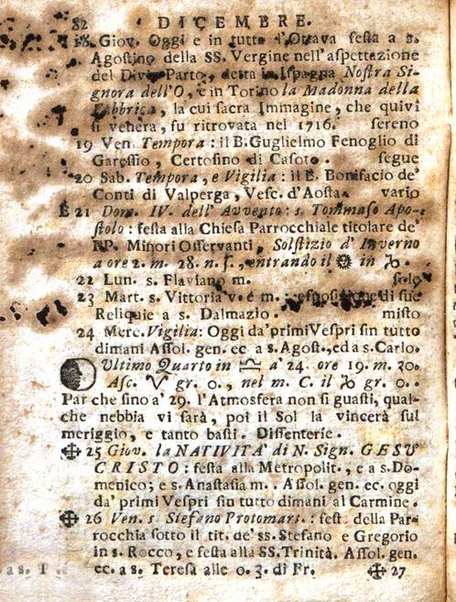 82 DICEMBRE.
18. Giov. Oggi e in tutta l'Ottava festa a s.
Agostino della SS. Vergine nell'aspettazione
del Divin Parto, detta in Ispagna Nostra Si-
gnora dell'O, e in Torino la Madonna della
Fabbrica, la cui sacra Immagine, che quivi
si venera, fu ritrovata nel 1716. sereno
19 Ven. Tempora: il B. Guglielmo Fenoglio di
Garessio, Certosino di Casoto. segue
20 Sab. Tempora, e Vigilia: il B. Bonifacio de'
Conti di Valperga, Vesc. d'Aosta. vario
E 21 Dom. IV. dell' Avvento: s. Tommaso Apo-
stolo: festa alla Chiesa Parrocchiale titolare de'
RP. Minori Osservanti, Solstizio d'Inverno
a ore 2. m. 28. n. s., entrando il ☼ in ♑.
22 Lun. s. Flaviano m. sole
23 Mart. s. Vittoria v. e m.; esposizione di sue
Reliquie a s. Dalmazio. misto
24 Merc. Vigilia: Oggi da' primi Vespri sin tutto
dimani Assol. gen. ec a s. Agost., ed a s. Carlo.
Ultimo Quarto in ♎ a' 24. ore 19. m. 30.
Asc. ♈ gr. 0., nel m. C. il ♑ gr. 0.
Par che sino a' 29. l'Atmosfera non si guasti, qual-
che nebbia vi sarà, poi il Sol la vincerà sul
meriggio, e tanto basti. Dissenterie.
✠ 25 Giov. la NATIVITA' di N. Sign. GESU'
CRISTO: festa alla Metropolit., e a s. Do-
menico; e s. Anastasia m. Assol. gen. ec. oggi
da' primi Vespri sin tutto dimani al Carmine.
✠ 26 Ven. s. Stefano Protomart.: fest. della Par-
rocchia sotto il tit. de' ss. Stefano e Gregorio
in s. Rocco, e festa alla SS. Trinità. Assol. gen.
ec. a s. Teresa alle o. 3. di Fr. ✠ 27